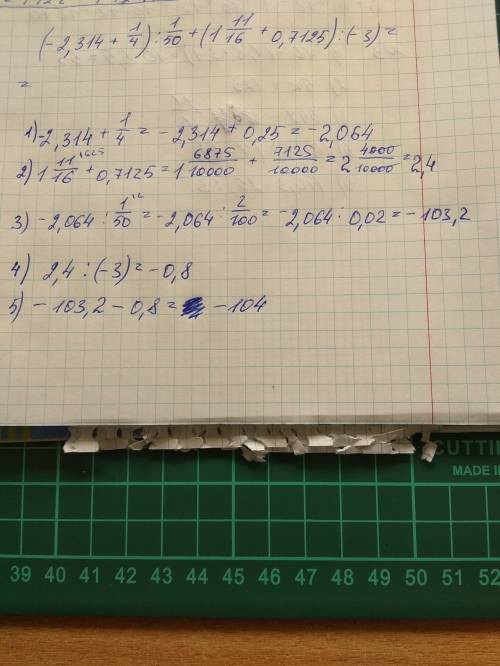 (-2,314 + 1/4) : 1/50 + (1 11/16 + 0,7125) : (-3) =
=
1) -2,314 + 1/4 = -2,314 + 0,25 = -2,064
2) 1 11/16 ^625 + 0,7125 = 1 6875/10000 + 7125/10000 = 2 4000/10000 = 2,4
3) -2,064 : 1/50 ^2 = -2,064 : 2/100 = -2,064 : 0,02 = -103,2
4) 2,4 : (-3) = -0,8
5) -103,2 - 0,8 = -104
CUTTIN
MADE I
39 40 41 42 43 44 45 46 47 48 49 50 51 52